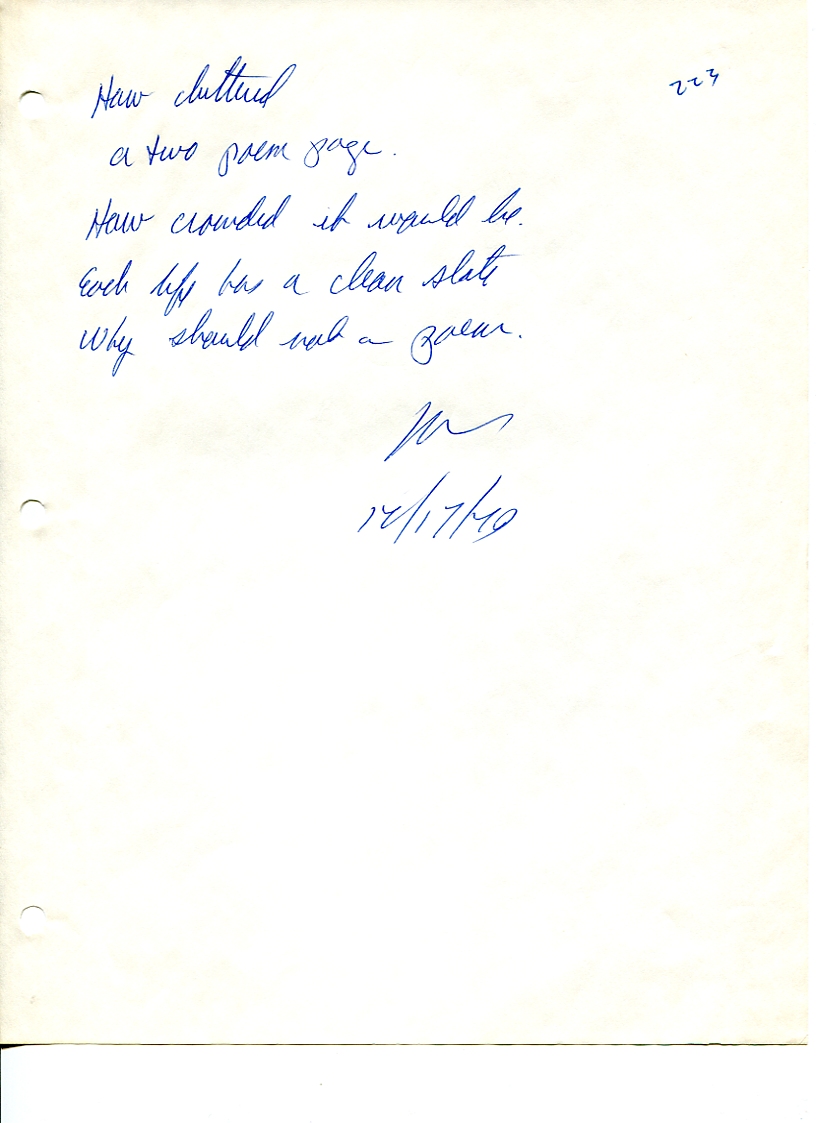 223
How cluttered
a two poem page.
How crowded it would be.
Each life has a clean slate
Why should not a poem.
12/17/79